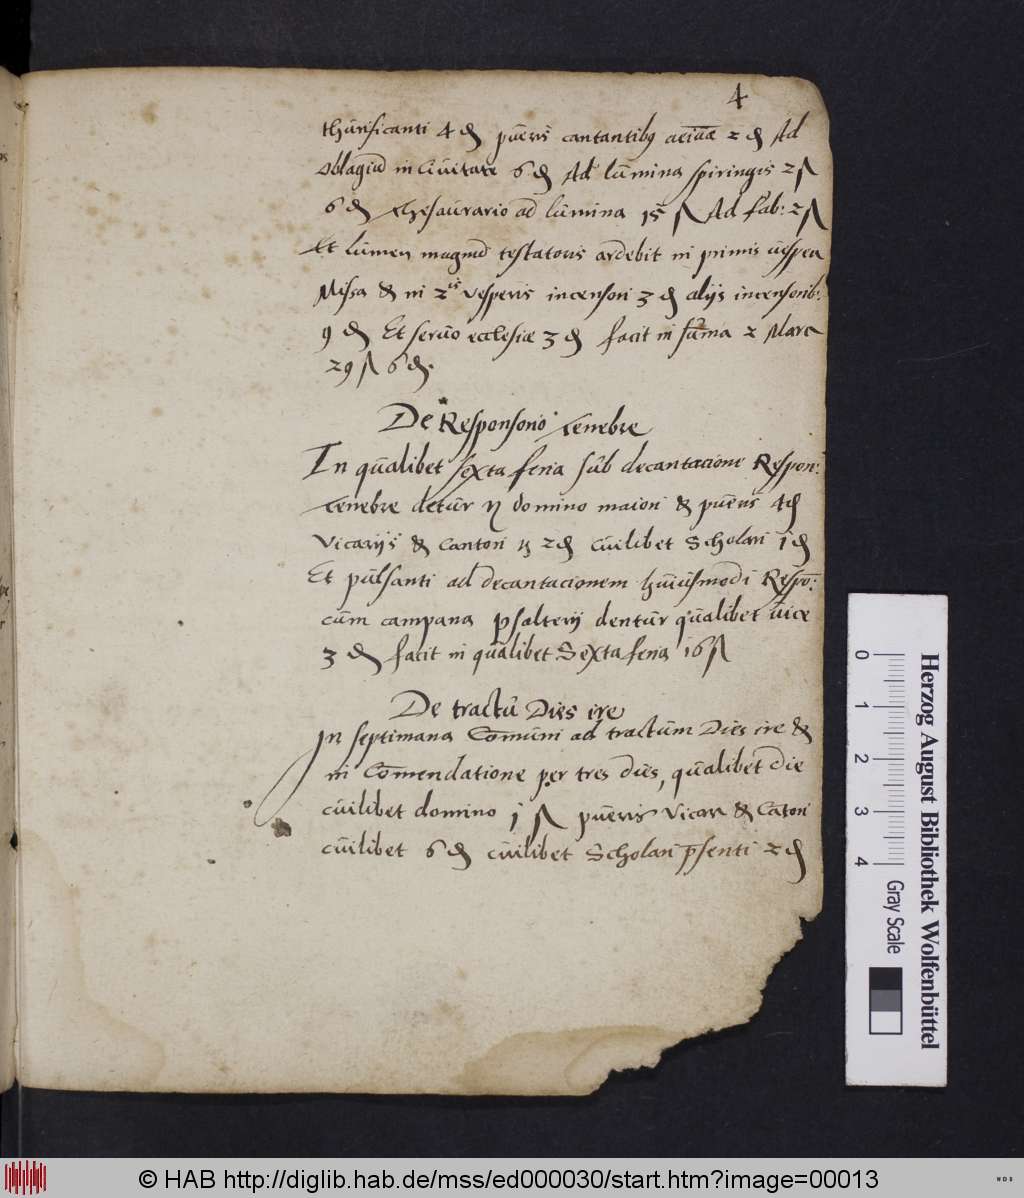 4
thurificanti 4 ₰ pueris cantantibꝯ 2 ₰ Ad
Oblagiū in Ciuitate 6 ₰ Ad lumina spiringis 2 ſ
6 ₰ Thesaurario ad lumina 15 ſ Ad fab: 2 ſ
Et lumen magnū testatoris ardebit in primis uesperis
Missa & in 2is Vesperis incensori 3 ₰ alijs incensorib:
9 ₰ Et seruo ecclesiæ 3 ₰ facit in sūma 2 Marc
29 ſ 6 ₰.
De Responsorio Tenebre
In qualibet sexta feria sub decantacione Respon:
Tenebre detur domino maiori & pueris 4 ₰
Vicarijs & Cantori 2 ₰ Cuilibet Scholari 1 ₰
Et pulsanti ad decantacionem huiusmodi Respō:
cum campana psalterij dentur qualibet uice
3 ₰ facit in qualibet Sexta feria 16 ſ
De tractu Dies ire
In septimana Com̄uni ad tractum Dies ire &
in Com̄endatione per tres dies, qualibet die
cuilibet domino 1 ſ pueris Vicar & Cātori
cuilibet 6 ₰ cuilibet Scholari p̄senti 2 ₰
0 1 2 3 4
Herzog August Bibliothek Wolfenbüttel
Gray Scale
© HAB http://diglib.hab.de/mss/ed000030/start.htm?image=00013